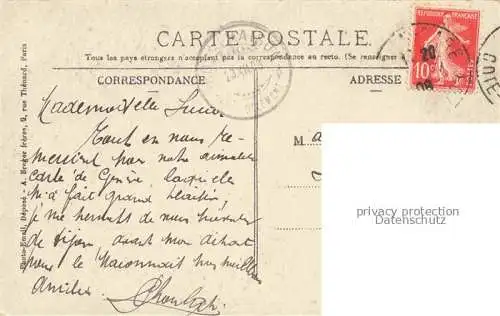 CARTE POSTALE
Tous les pays étrangers n'acceptent pas la correspondance au recto. (Se renseigner
CORRESPONDANCE
ADRESSE
RÉPUBLIQUE FRANÇAISE
10
20
09
COTE
Photo-Email, Déposé - A. Breger frères, 9, rue Thénard, Paris
Mademoiselle
Tout en vous re-
merciant pour votre aimable
carte de Genève laquelle
m'a fait grand plaisir,
je me permets de vous
de Dijon avant mon départ
pour le meilleures
amitiés
M
privacy protection
Datenschutz